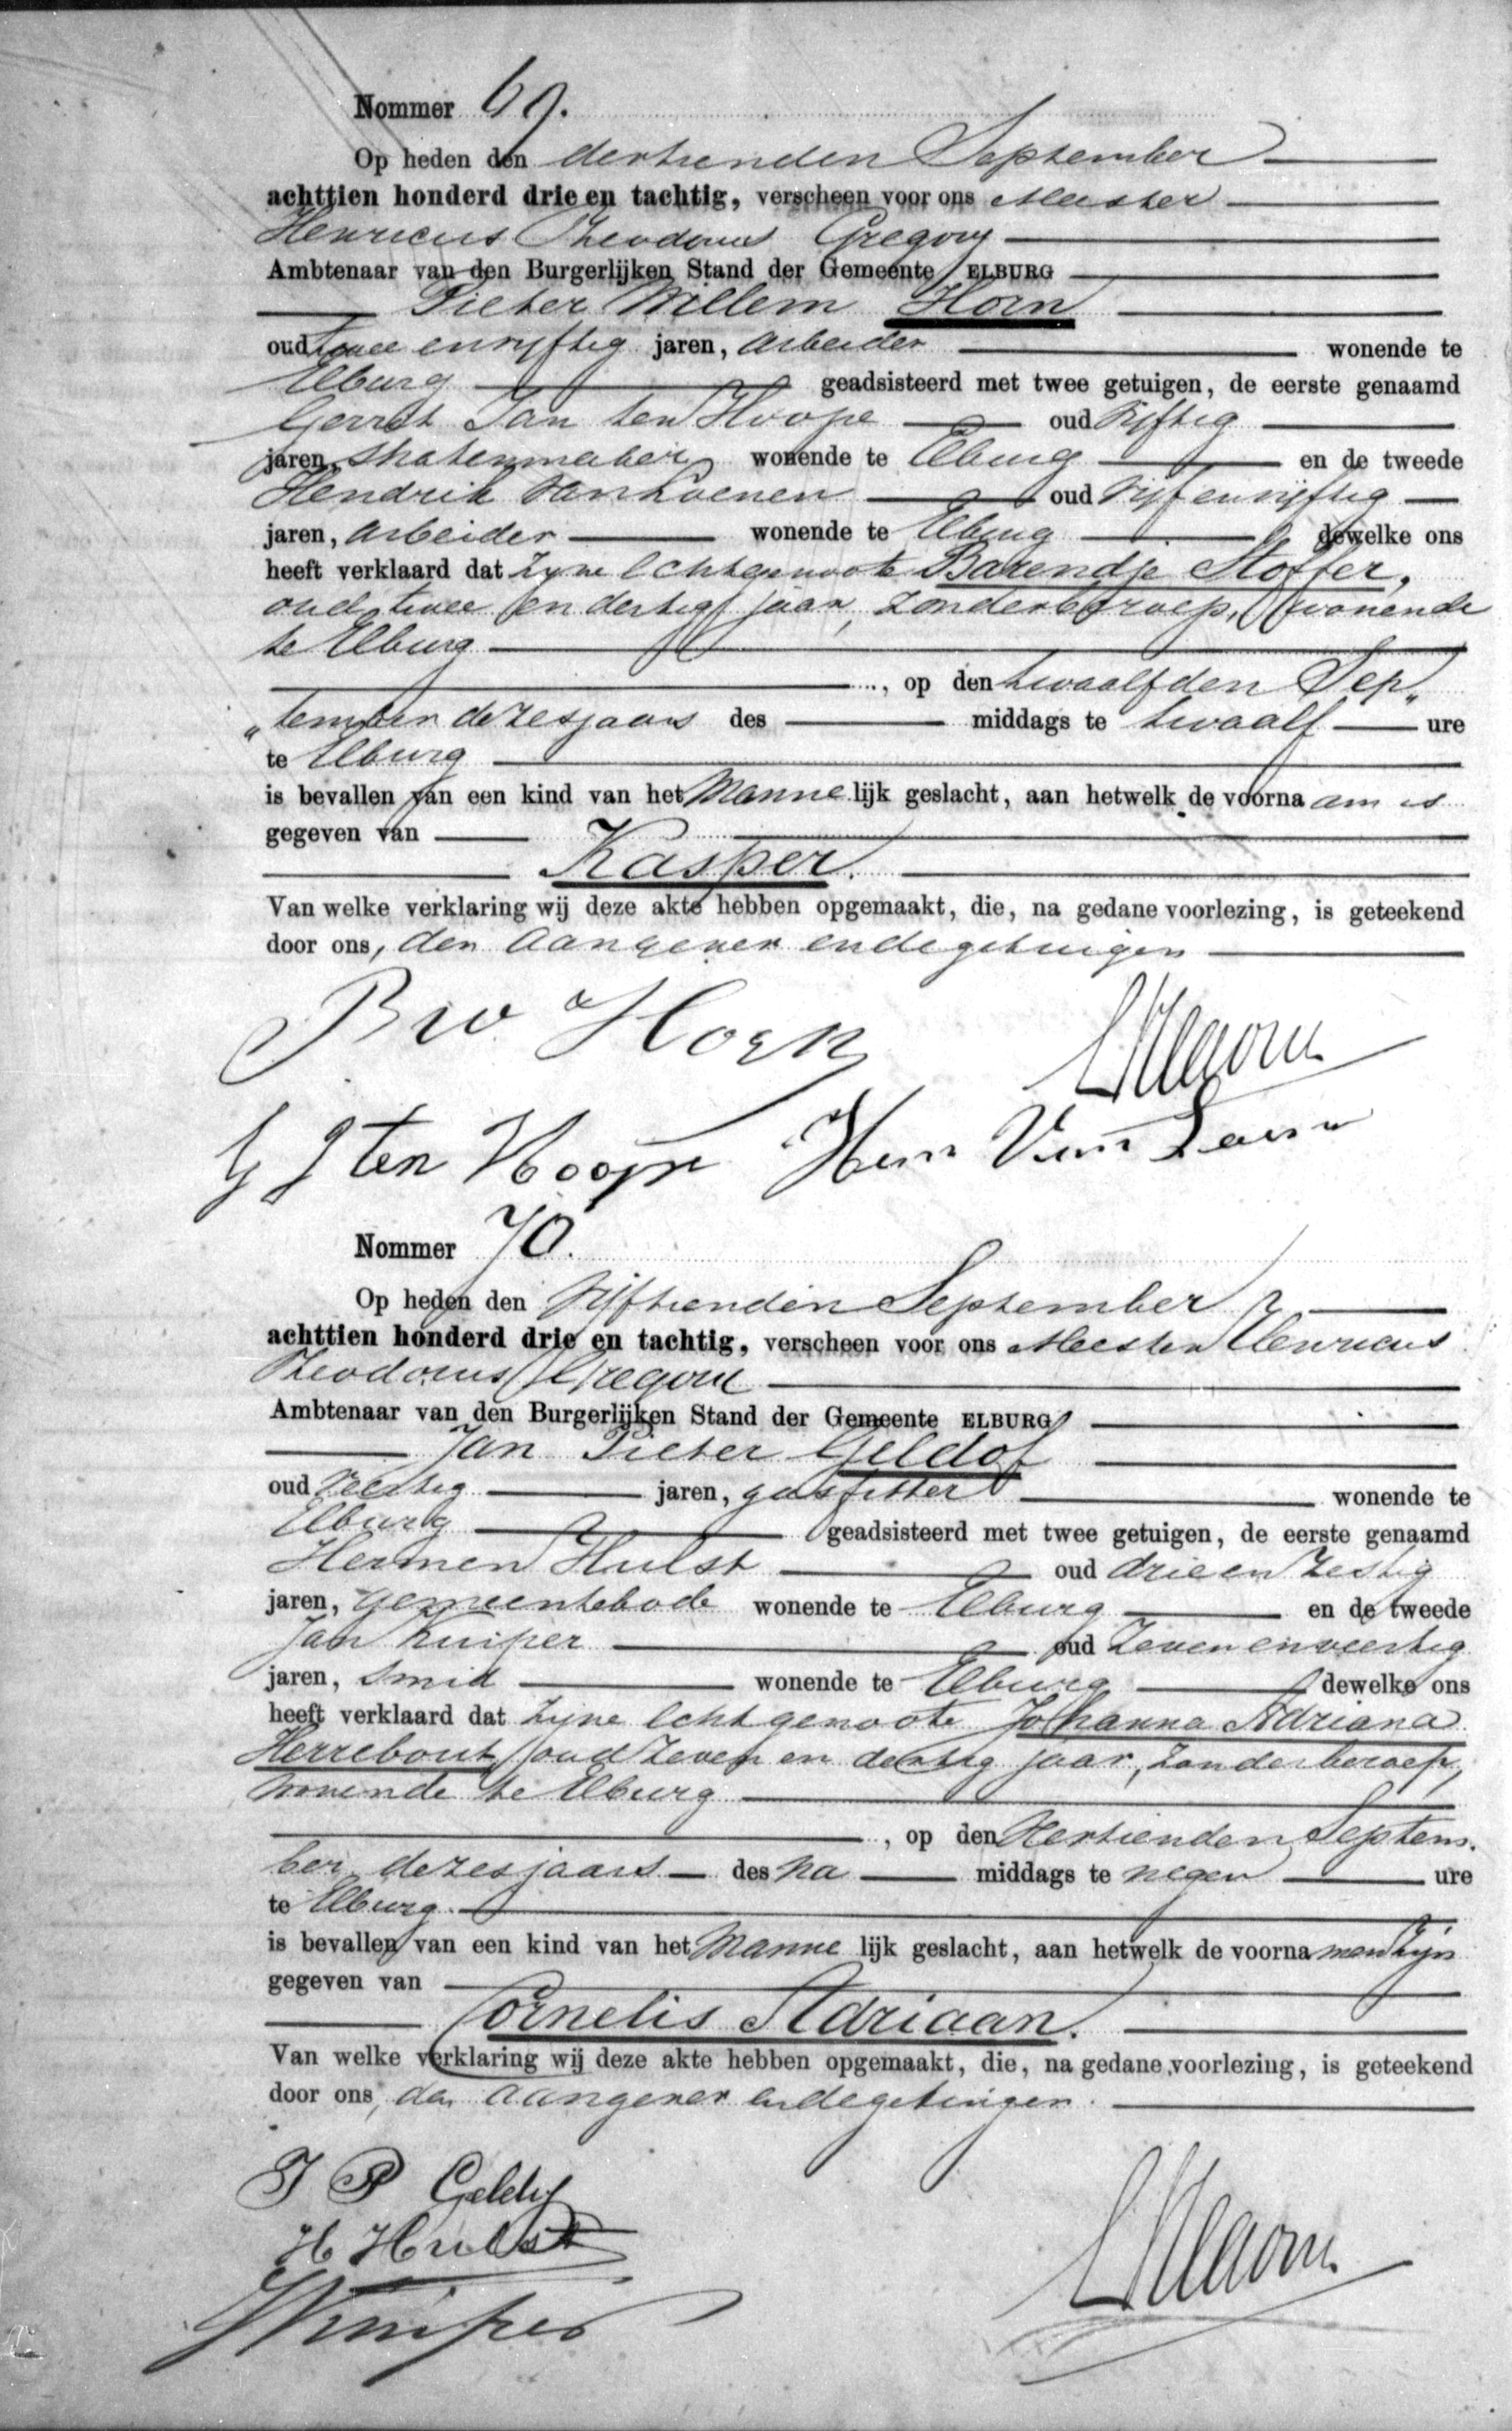 Nommer 69.
Op heden den dertienden September
achttien honderd drie en tachtig, verscheen voor ons Meester
Henricus Theodorus Gregory
Ambtenaar van den Burgerlijken Stand der Gemeente ELBURG
Pieter Willem Horn
oud twee en vijftig jaren, arbeider wonende te
Elburg geadsisteerd met twee getuigen, de eerste genaamd
Gerrit Jan ten Hoope oud vijftig
jaren, wonende te Elburg en de tweede
Hendrik van Loenen oud vijf en vijftig
jaren, arbeider wonende te Elburg dewelke ons
heeft verklaard dat zyne echtgenoote Barendje Stoffer,
oud twee en dertig jaar, zonder beroep, wonende
te Elburg
, op den twaalfden Sep„
„tember dezes jaars des middags te twaalf ure
te Elburg
is bevallen van een kind van het Manne lijk geslacht, aan hetwelk de voorna am is
gegeven van
Kasper.
Van welke verklaring wij deze akte hebben opgemaakt, die, na gedane voorlezing, is geteekend
door ons, den aangever en de getuigen
P W Horn
G J ten Hoope Hen Van Loenen
Nommer 70.
Op heden den vijftienden September
achttien honderd drie en tachtig, verscheen voor ons Meester Henricus
Theodorus Gregory
Ambtenaar van den Burgerlijken Stand der Gemeente ELBURG
Jan Pieter Geldof
oud veertig jaren, gasfitter wonende te
Elburg geadsisteerd met twee getuigen, de eerste genaamd
Hermen Hulst oud drie en zestig
jaren, gemeentebode wonende te Elburg en de tweede
Jan Kuiper oud zeven en veertig
jaren, smid wonende te Elburg dewelke ons
heeft verklaard dat zyne echtgenoote Johanna Adriana
Herrebout, oud zeven en dertig jaar, zonder beroep,
wonende te Elburg
, op den dertienden Septem-
ber dezes jaars des na middags te negen ure
te Elburg.
is bevallen van een kind van het Manne lijk geslacht, aan hetwelk de voorna men zijn
gegeven van
Cornelis Adriaan.
Van welke verklaring wij deze akte hebben opgemaakt, die, na gedane voorlezing, is geteekend
door ons, den aangever en de getuigen.
J P Geldof
H Hulst
J Kuiper